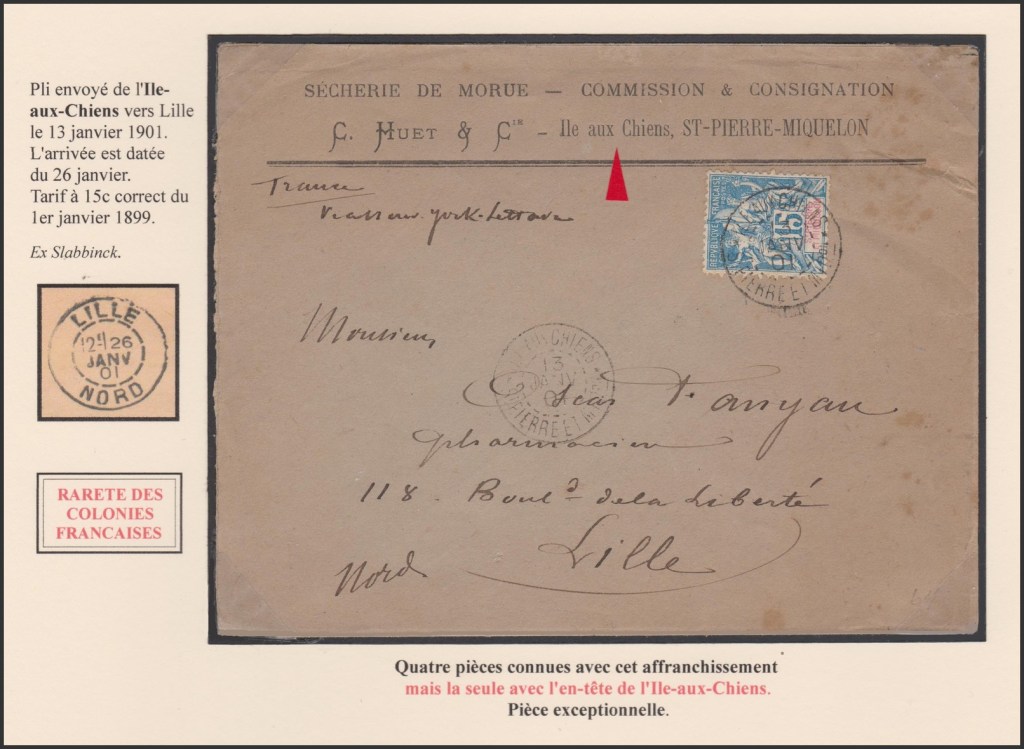 Pli envoyé de l'Ile-
aux-Chiens vers Lille
le 13 janvier 1901.
L'arrivée est datée
du 26 janvier.
Tarif à 15c correct du
1er janvier 1899.
Ex Slabbinck.
LILLE
26
JANV
01
NORD
RARETE DES
COLONIES
FRANCAISES
SÉCHERIE DE MORUE — COMMISSION & CONSIGNATION
C. HUET & CIE - Ile aux Chiens, ST-PIERRE-MIQUELON
France
York
RÉPUBLIQUE FRANÇAISE
15
CHIENS
PIERRE ET
Monsieur
CHIENS
13
PIERRE ET
Oscar Fanyau
pharmacien
118. Bould de la Liberté
Lille
Nord
Quatre pièces connues avec cet affranchissement
mais la seule avec l'en-tête de l'Ile-aux-Chiens.
Pièce exceptionnelle.